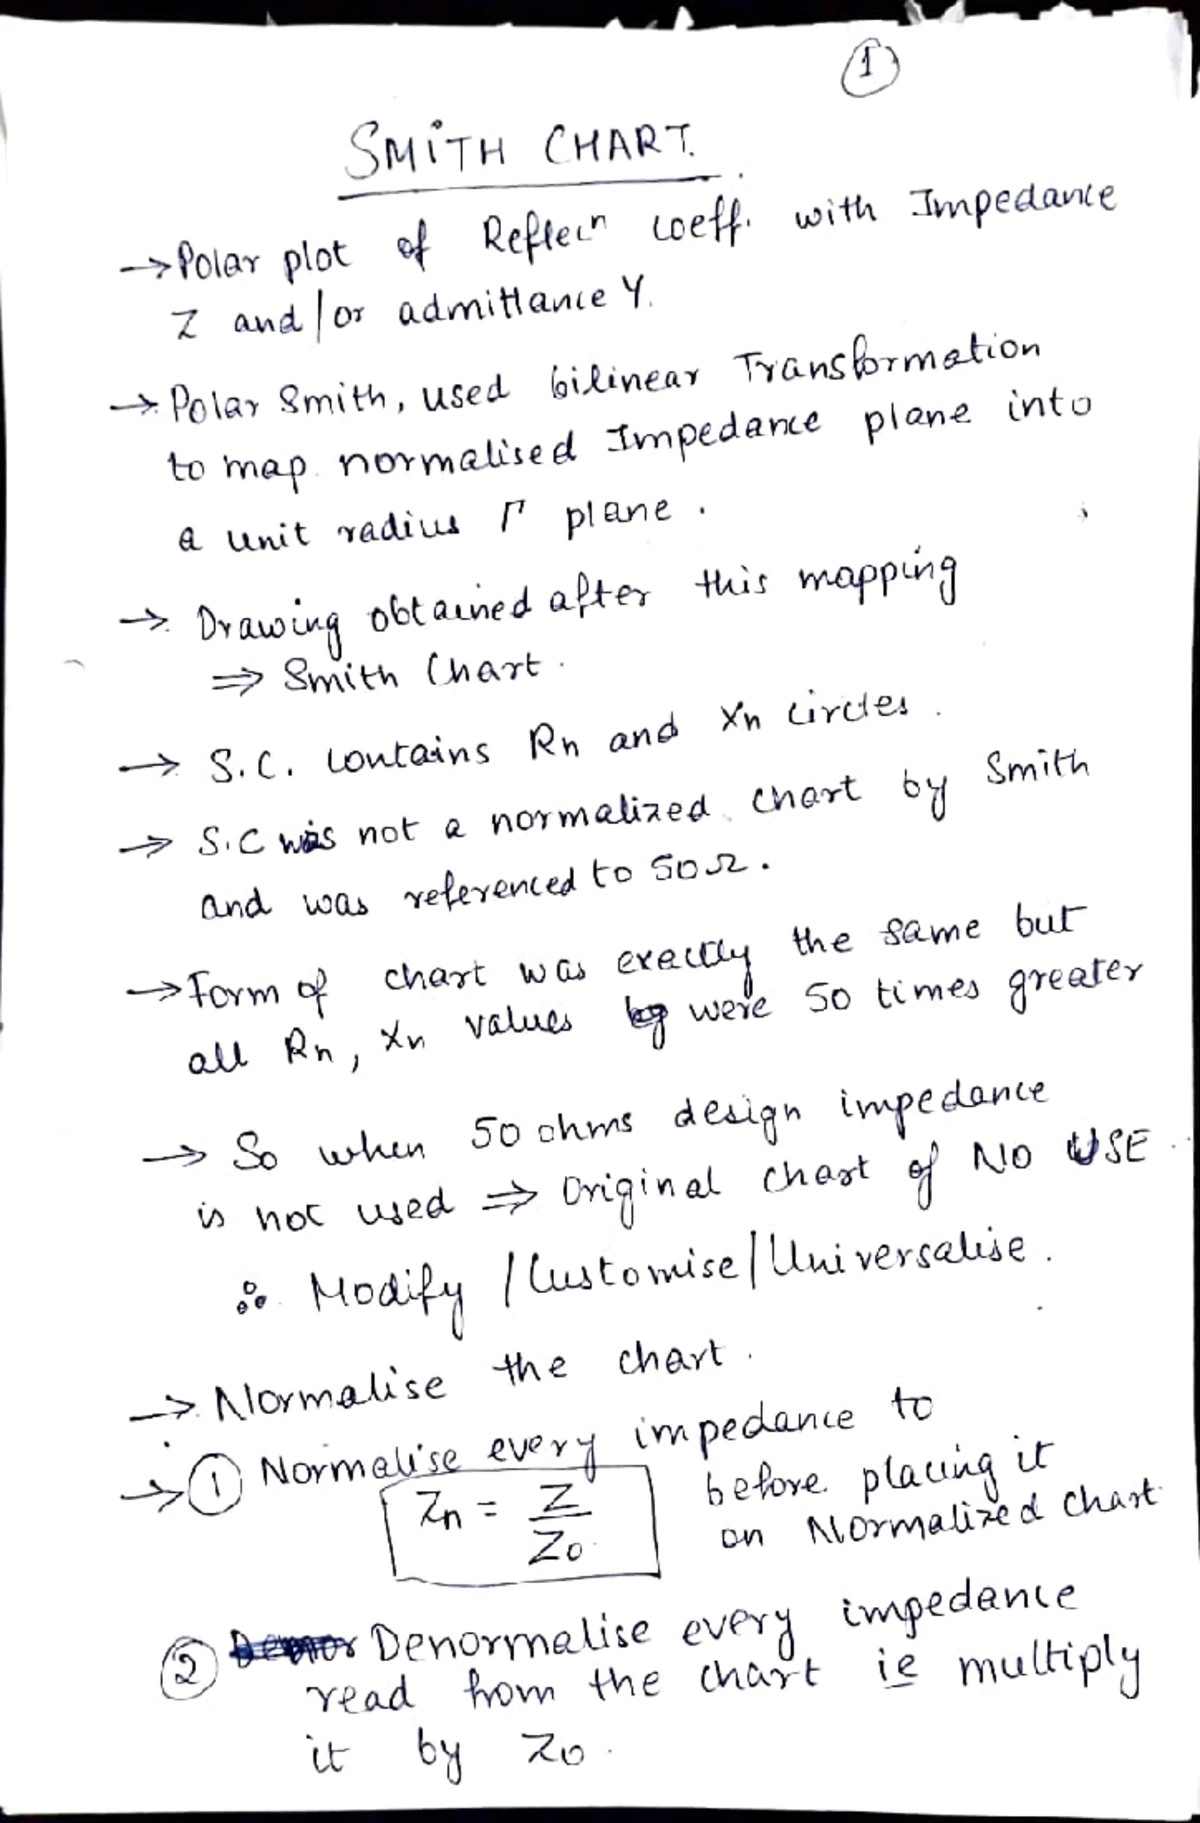 1
SMiTH CHART.
→ Polar plot of Reflecn coeff. with Impedance
Z and/or admittance Y.
→ Polar Smith, used bilinear Transformation
to map normalised Impedance plane into
a unit radius Γ plane.
→ Drawing obtained after this mapping
⇒ Smith Chart.
→ S.C. contains Rn and Xn circles.
→ S.C was not a normalized chart by Smith
and was referenced to 50Ω.
→ Form of chart was exactly the same but
all Rn, Xn values were 50 times greater
→ So when 50 ohms design impedance
is not used ⇒ Original chart of NO USE
∴ Modify / Customise / Universalise.
→ Normalise the chart.
→ ① Normalise every impedance to
Zn = Z/Zo before placing it
on Normalized chart
② Denormalise every impedance
read from the chart ie multiply
it by Zo.